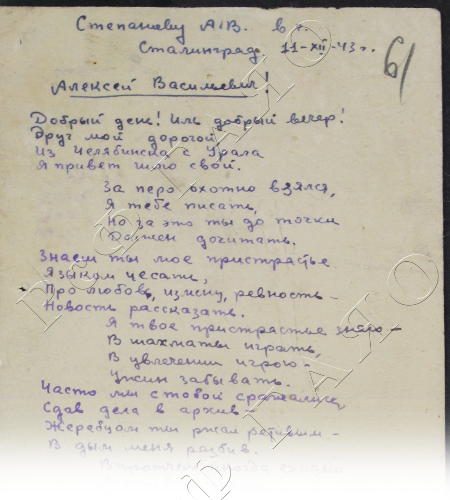 Степанову А.В. в г.
Сталинград. 11-XII-43 г.
61
Алексей Васильевич!
Добрый день! Иль добрый вечер!
Друг мой дорогой,
Из Челябинска с Урала
Я привет шлю свой.
За перо охотно взялся,
Я тебе писать,
Но за это ты до точки
Должен дочитать.
Знаем ты мое пристрастье
Языком чесать,
Про любовь, измену, ревность –
Новость рассказать.
Я твое пристрастье знаю –
В шахматы играть,
В увлечении игрою –
Ужин забывать.
Часто мы с тобой сражались,
Сдав дела в архив –
Жеребцом ты ржал ретивым –
В дым меня разбив.